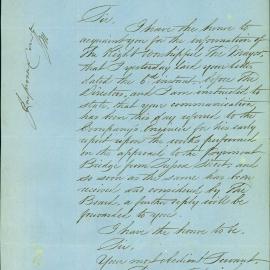 Sir,
I have the honor to
acquaint you for the information of
The Right Worshipful The Mayor,
that I yesterday laid your letter
dated the 6th instant, before the
Directors, and I am instructed to
state, that your communication
has been this day referred to the
Company's Engineer for his early
report upon the works performed
on the approach to the Pyrmont
Bridge from Sussex Street, and
so soon as the same has been
received and considered by the
Board, a further reply will be
forwarded to you.
I have the honor to be
Sir,
Your most obedient Servant